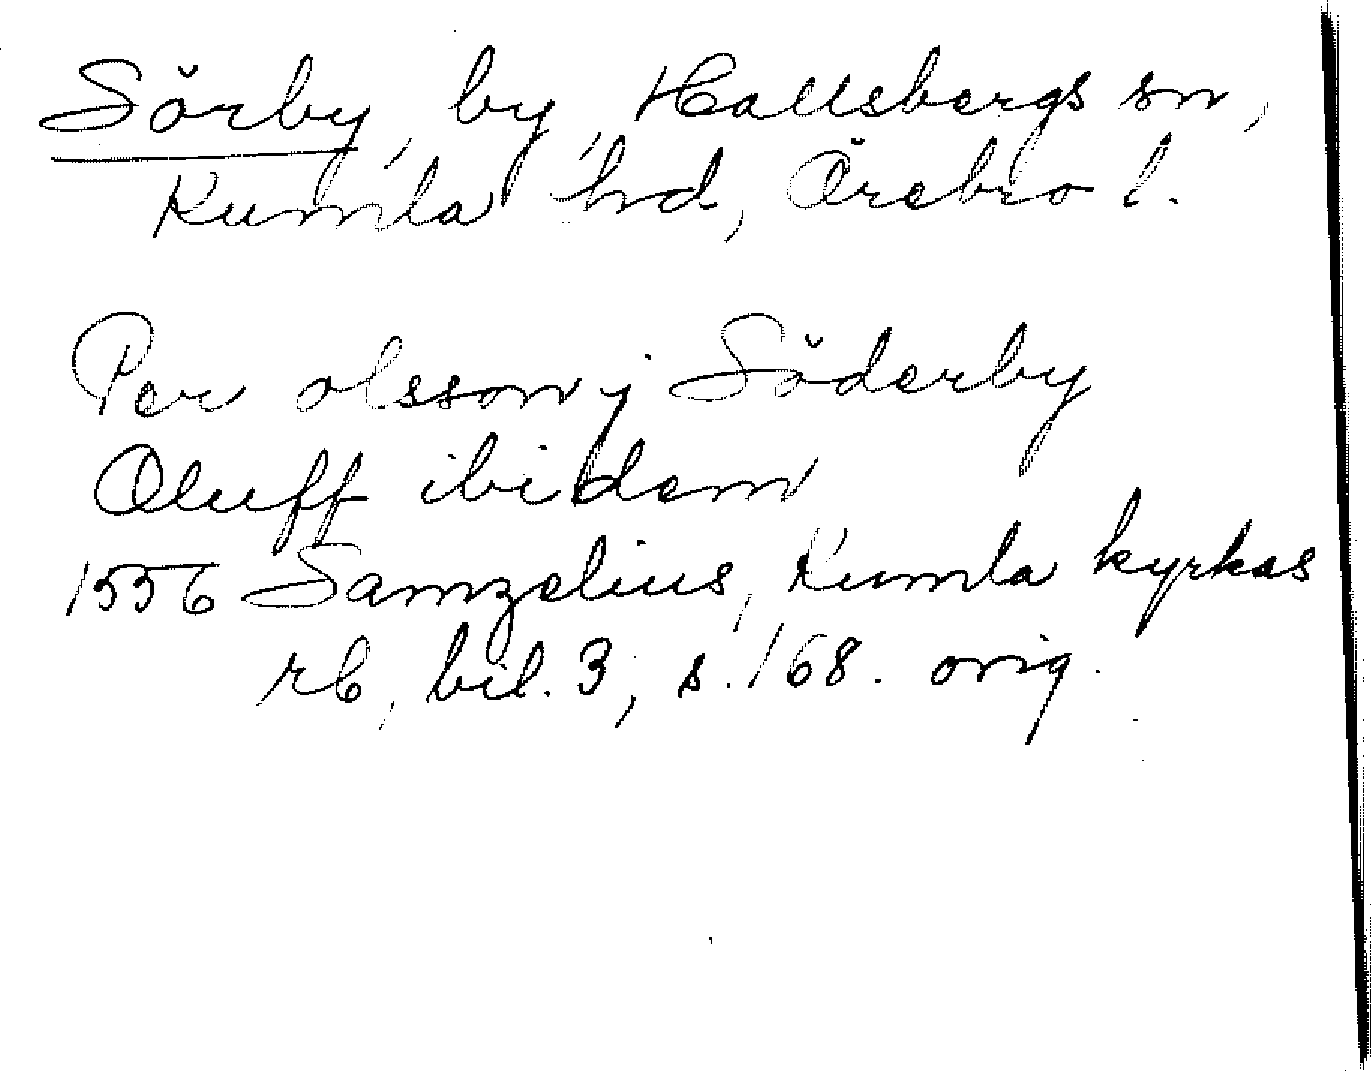 Sörby, by, Hallsbergs sn,
Kumla hd, Örebro l.
Per olsson j Söderby
Oluff ibidem
1556 Samzelius, Kumla kyrkas
rb, bil. 3, s. 168. orig.